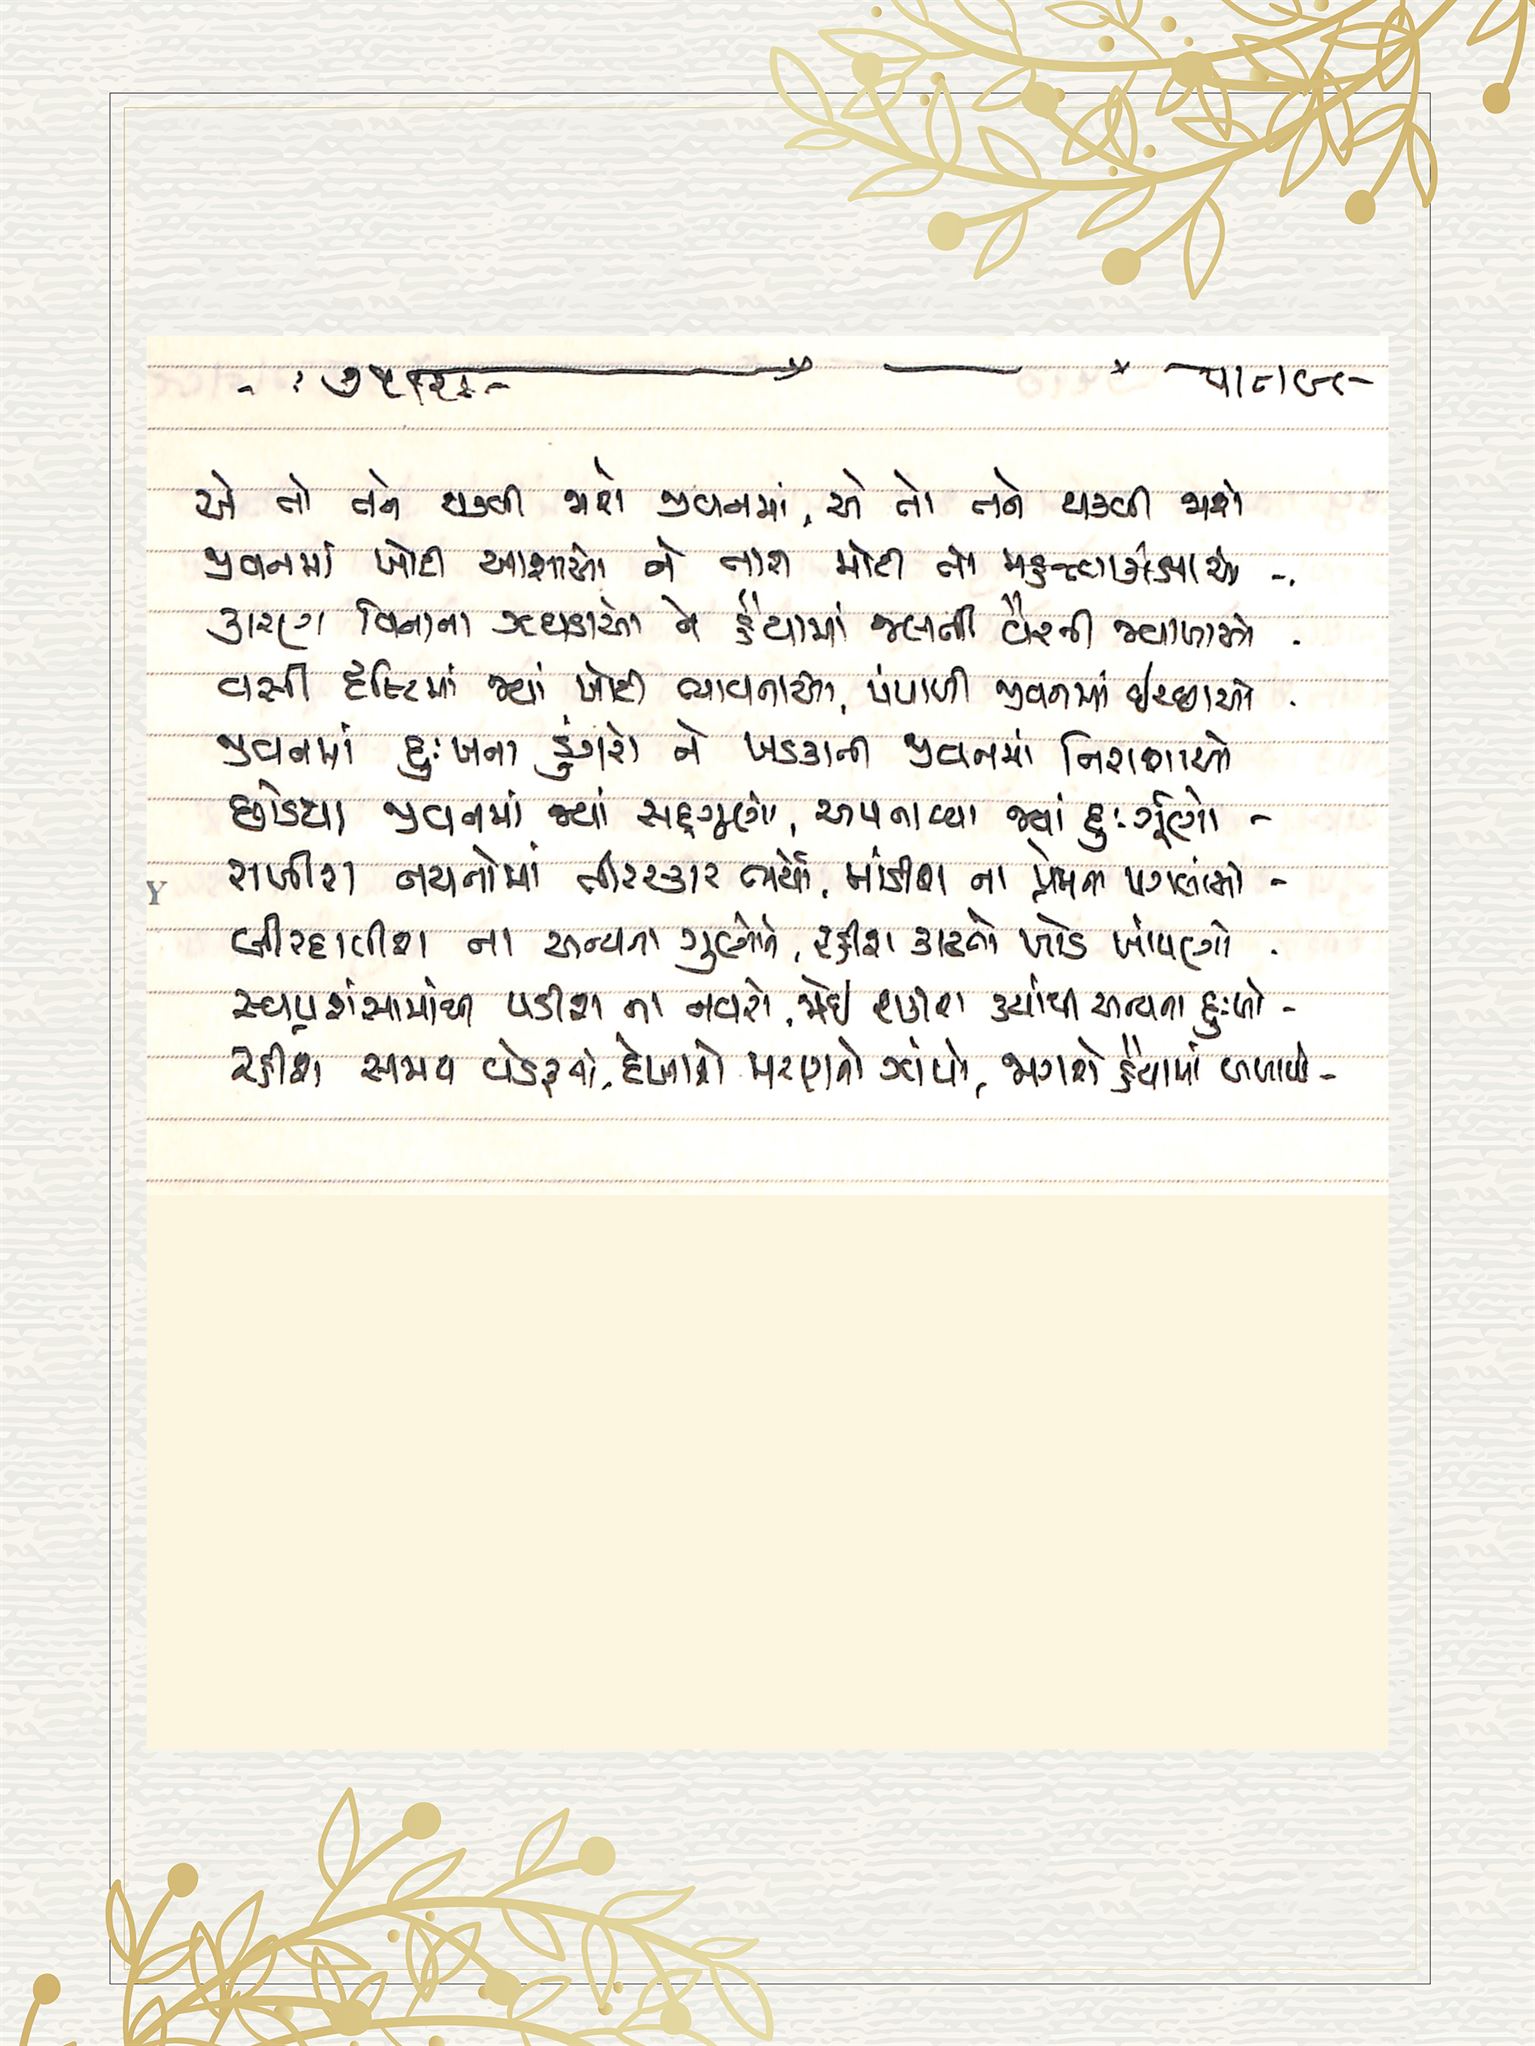 એ તો તને થકવી જાશે જીવનમાં, એ તો તને થકવી જાશે
જીવનમાં ખોટી આશાઓ ને તારી મોટી તો મહત્ત્વાકાંક્ષાઓ -.
કારણ વિનાના ઝઘડાઓ ને હૈયામાં જલતી વૈરની જ્વાળાઓ .
વસી દૃષ્ટિમાં જ્યાં ખોટી ભાવનાઓ, પંપાળી જીવનમાં ઇચ્છાઓ .
જીવનમાં દુઃખના ડુંગરો ને ખડકાતી જીવનમાં નિરાશાઓ
છોડયા જીવનમાં જ્યાં સદ્ગુણો, અપનાવ્યા જ્યાં દુઃર્ગુણો -
રાખીશ નયનોમાં તીરસ્કાર ભર્યો, માંડીશ ના પ્રેમના પગલાંઓ -
બીરદાવીશ ના અન્યના ગુણોને, રહીશ કાઢતો ખોડ ખાંપણો .
સ્વપ્રશંસામાંથી પડીશ ના નવરો, જોઇ શકીશ ક્યાંથી અન્યના દુઃખો -
રહીશ સમય વેડફતો, દેખાશે મરણનો ઝાંપો, જાગશે હૈયામાં
Y